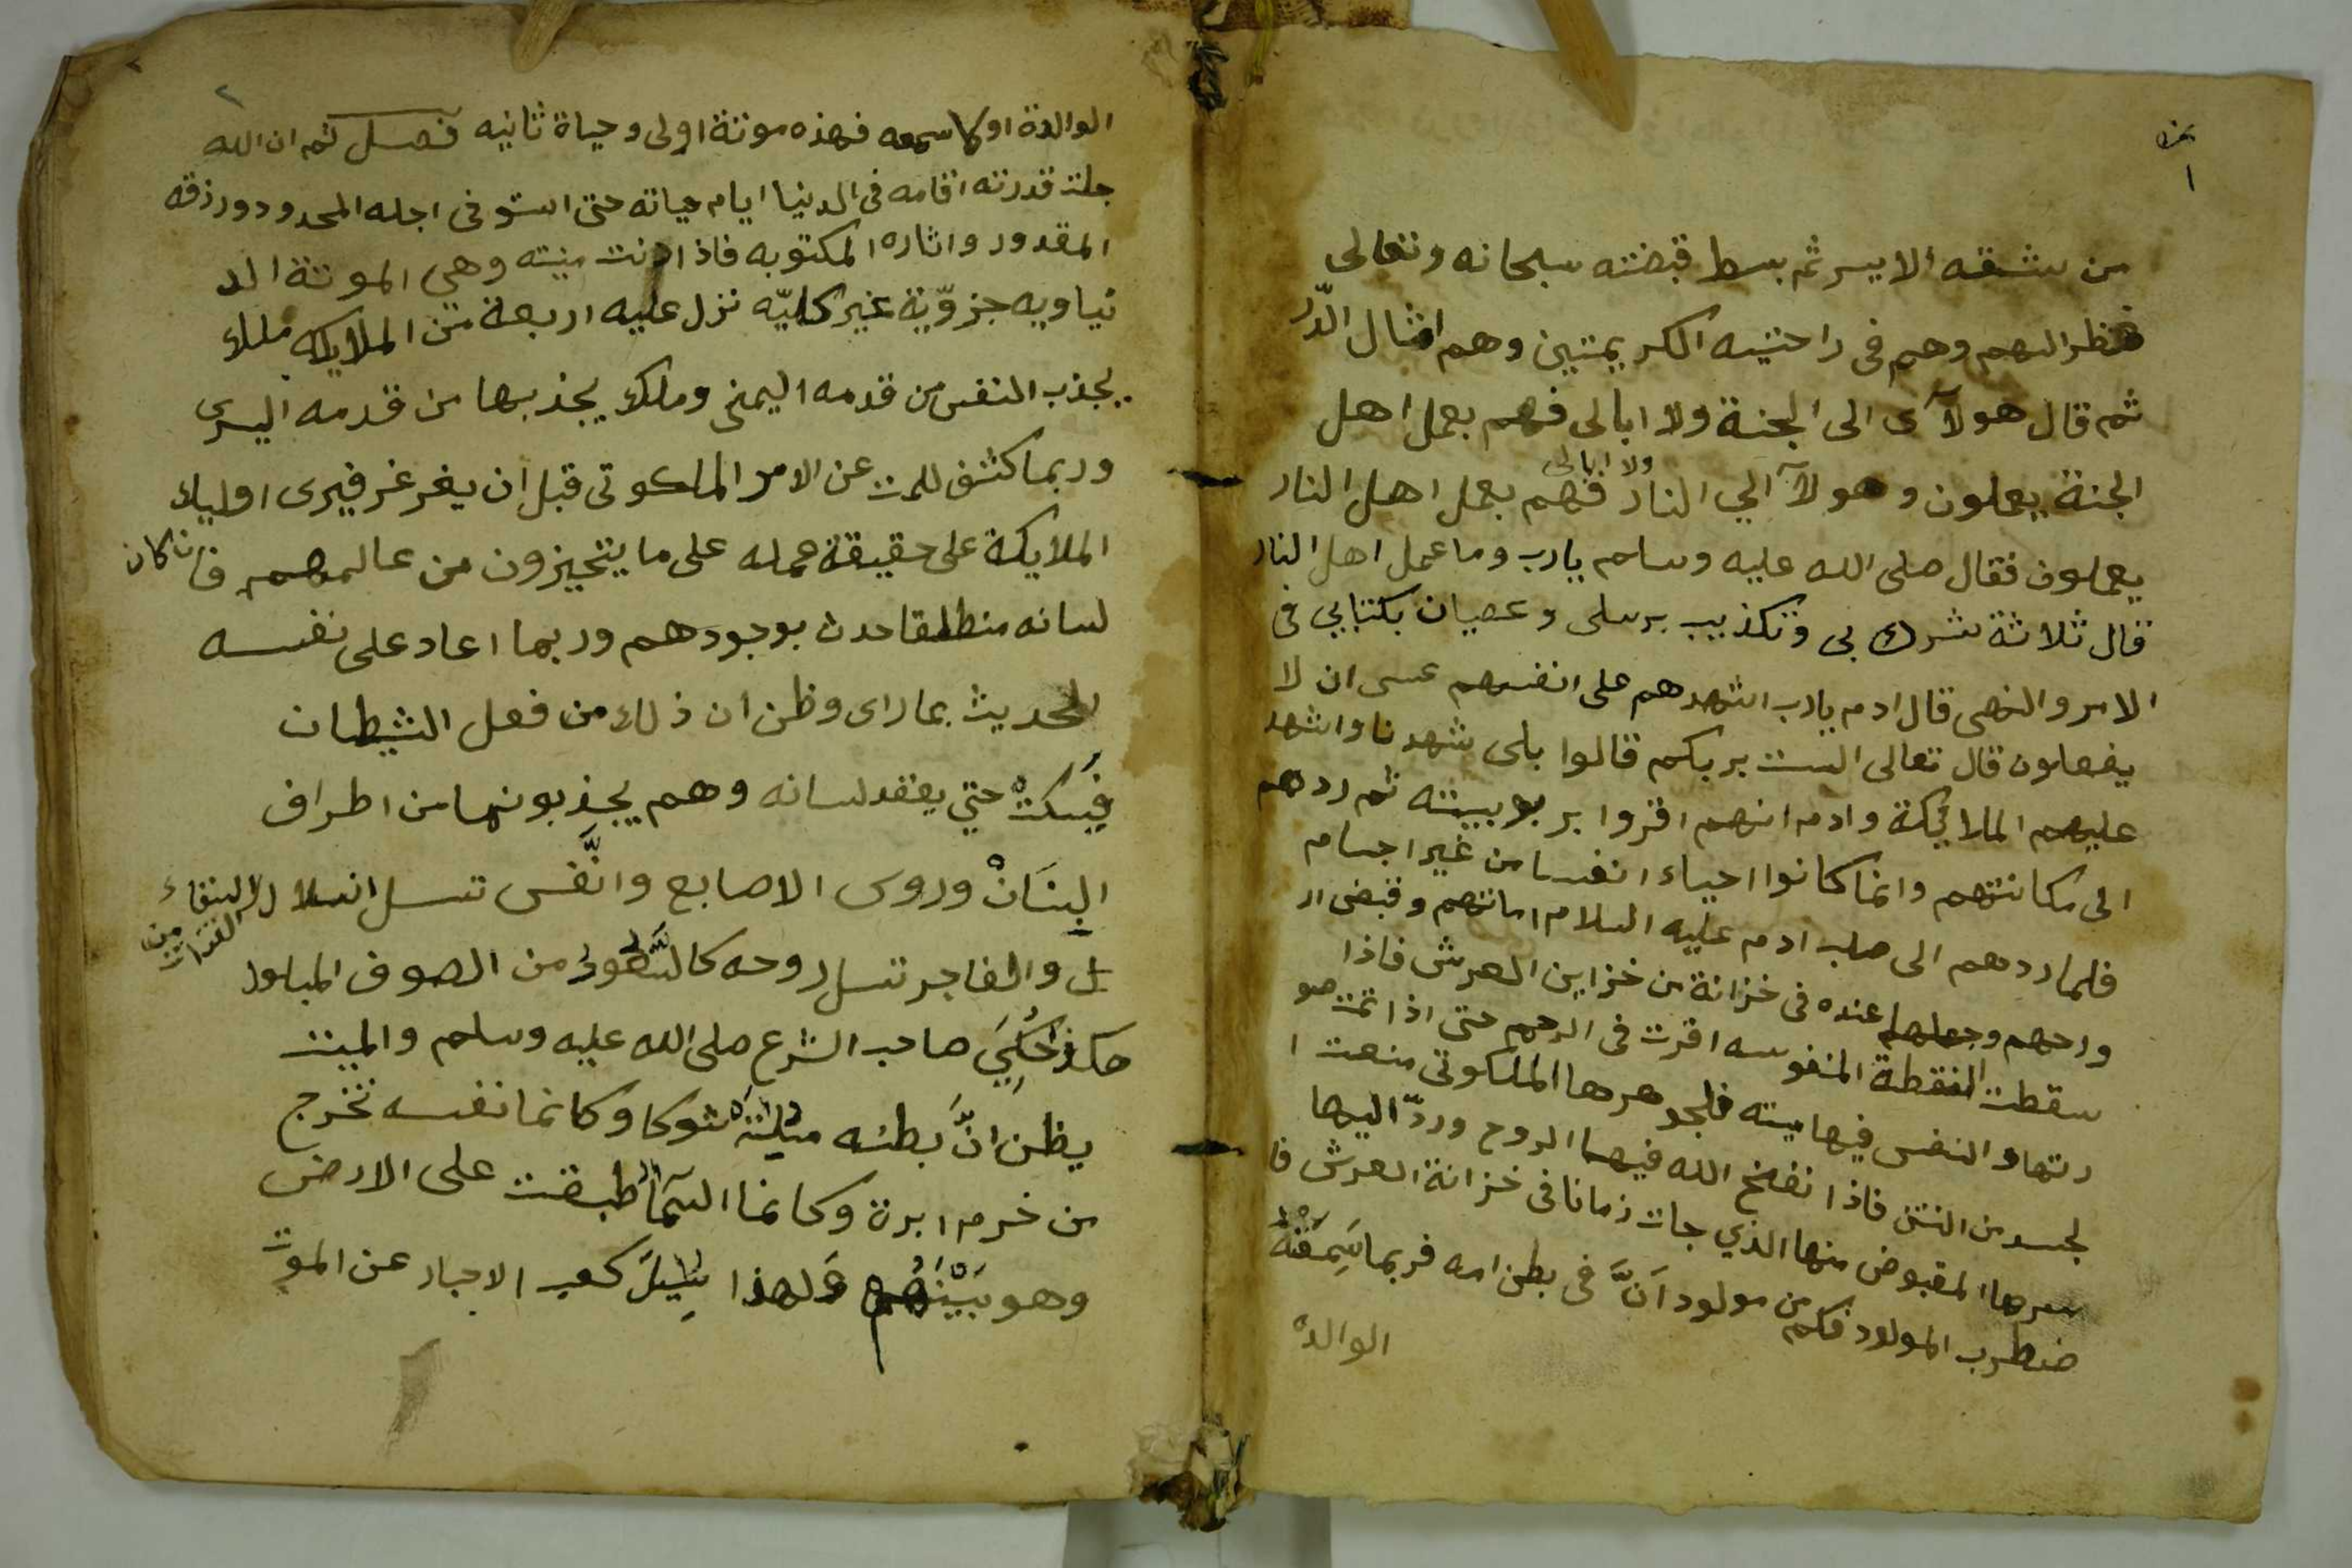 ١
من شقه الايسر ثم بسط قبضته سبحانه وتعالى
فنظر اليهم وهم في راحتيه الكريمتين وهم امثال الذّر
ثم قال هولآى الى الجنة ولا ابالى فهم بعمل اهل
الجنة يعملون وهولآ الي النار ولا ابالى فهم بعمل اهل النار
يعملون فقال صلى الله عليه وسلم يارب وما عمل اهل النار
قال ثلاثة شرك بى وتكذيب برسلى وعصيان بكتابي فى
الامر والنهى قال ادم يارب اشهدهم على انفسهم عسى ان لا
يفعلون قال تعالى الست بربكم قالوا بلى شهدنا واشهد
عليهم الملائيكة وادم انهم اقروا بربوبيته ثم ردهم
الى مكانتهم وانما كانوا احياء انفسا من غير اجسام
فلما ردهم الى صلب ادم عليه السلام اماتهم وقبض ار
واحهم وجعلها عنده فى خزانة من خزاين العرش فاذا
سقطت النقطة المنفوسه اقرت فى الرحم حتى اذا تمت صو
رتها والنفس فيها ميته فلجوهرها الملكوتى منعت ا
لجسد من النتن فاذا نفخ الله فيها الروح وردّ اليها
سرها المقبوض منها الذي جات زمانا فى خزانة العرش فا
ضطرب المولود فكم من مولود اَنَّ فى بطن امه فربما سَمِعَتْهُ
الوالدة
٢
الوالدة او كا سمعه فهذه موتة اولى وحياة ثانيه فصل ثم ان الله
جلت قدرته اقامه فى الدنيا ايام حياته حتى استوفى اجله المحدود ورزقه
المقدور واثاره المكتوبه فاذا دنت ميته وهي الموتة الد
نياويه جزوّية غير كليّه نزل عليه اربعة من الملايكه ملك
يجذب النفس من قدمه اليمنى وملك يجذبها من قدمه اليسرى
وربما كشف للمت عن الامر الملكوتى قبل ان يغرغر فيرى اوليك
الملايكة على حقيقة عمله على ما يتحيزون من عالمهم فان كان
لسانه منطلقا حدث بوجودهم وربما اعاد على نفسه
الحديث بما راى وظن ان ذلك من فعل الشيطان
فيسكت حتي يعقد لسانه وهم يجذبونها من اطراف
البنَانْ وروس الاصابع والنَّفس تنسل انسلال القذاة من السقاء
والفاجر تنسل روحه كالسَّفود من الصوف المبلول
هكذا حُكِيَ صاحب الشرع صلى الله عليه وسلم والميت
يظن انَّ بطنه مُلِئَة شوكا وكانما نفسه تخرج
من خرم ابرة وكانما السَّمآ اطبقت على الارض
وهو بَيْنَهُم وَلهذا سُيِلَ كعب الاحبار عن الموت